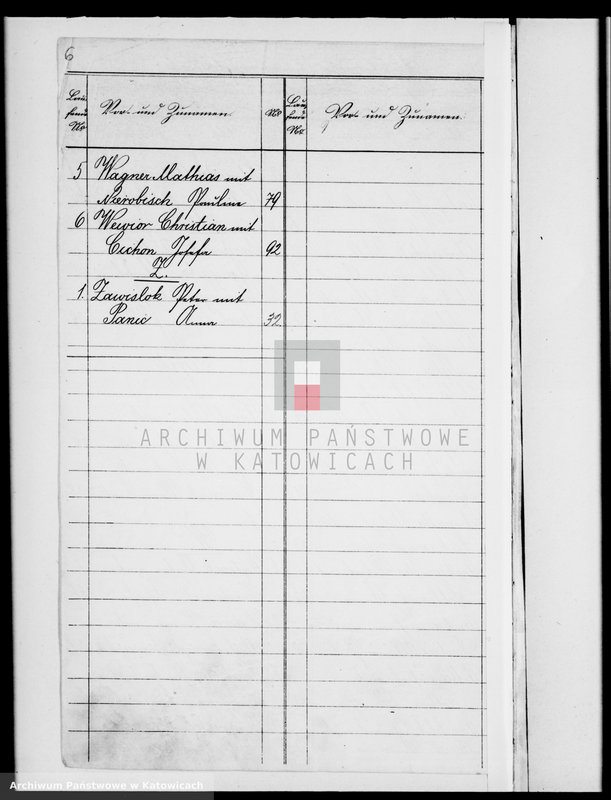 6
Lau-
fende
No
Vor- und Zunamen.
No
Lau-
fende
No.
Vor- und Zunamen.
5 Wagner Mathias mit
Nierobisch Pauline 79
6 Wewior Christian mit
Cichon Josefa 92
Z.
1. Zawislok Peter mit
Panic Anna 32.
ARCHIWUM PAŃSTWOWE
W KATOWICACH
Archiwum Państwowe w Katowicach